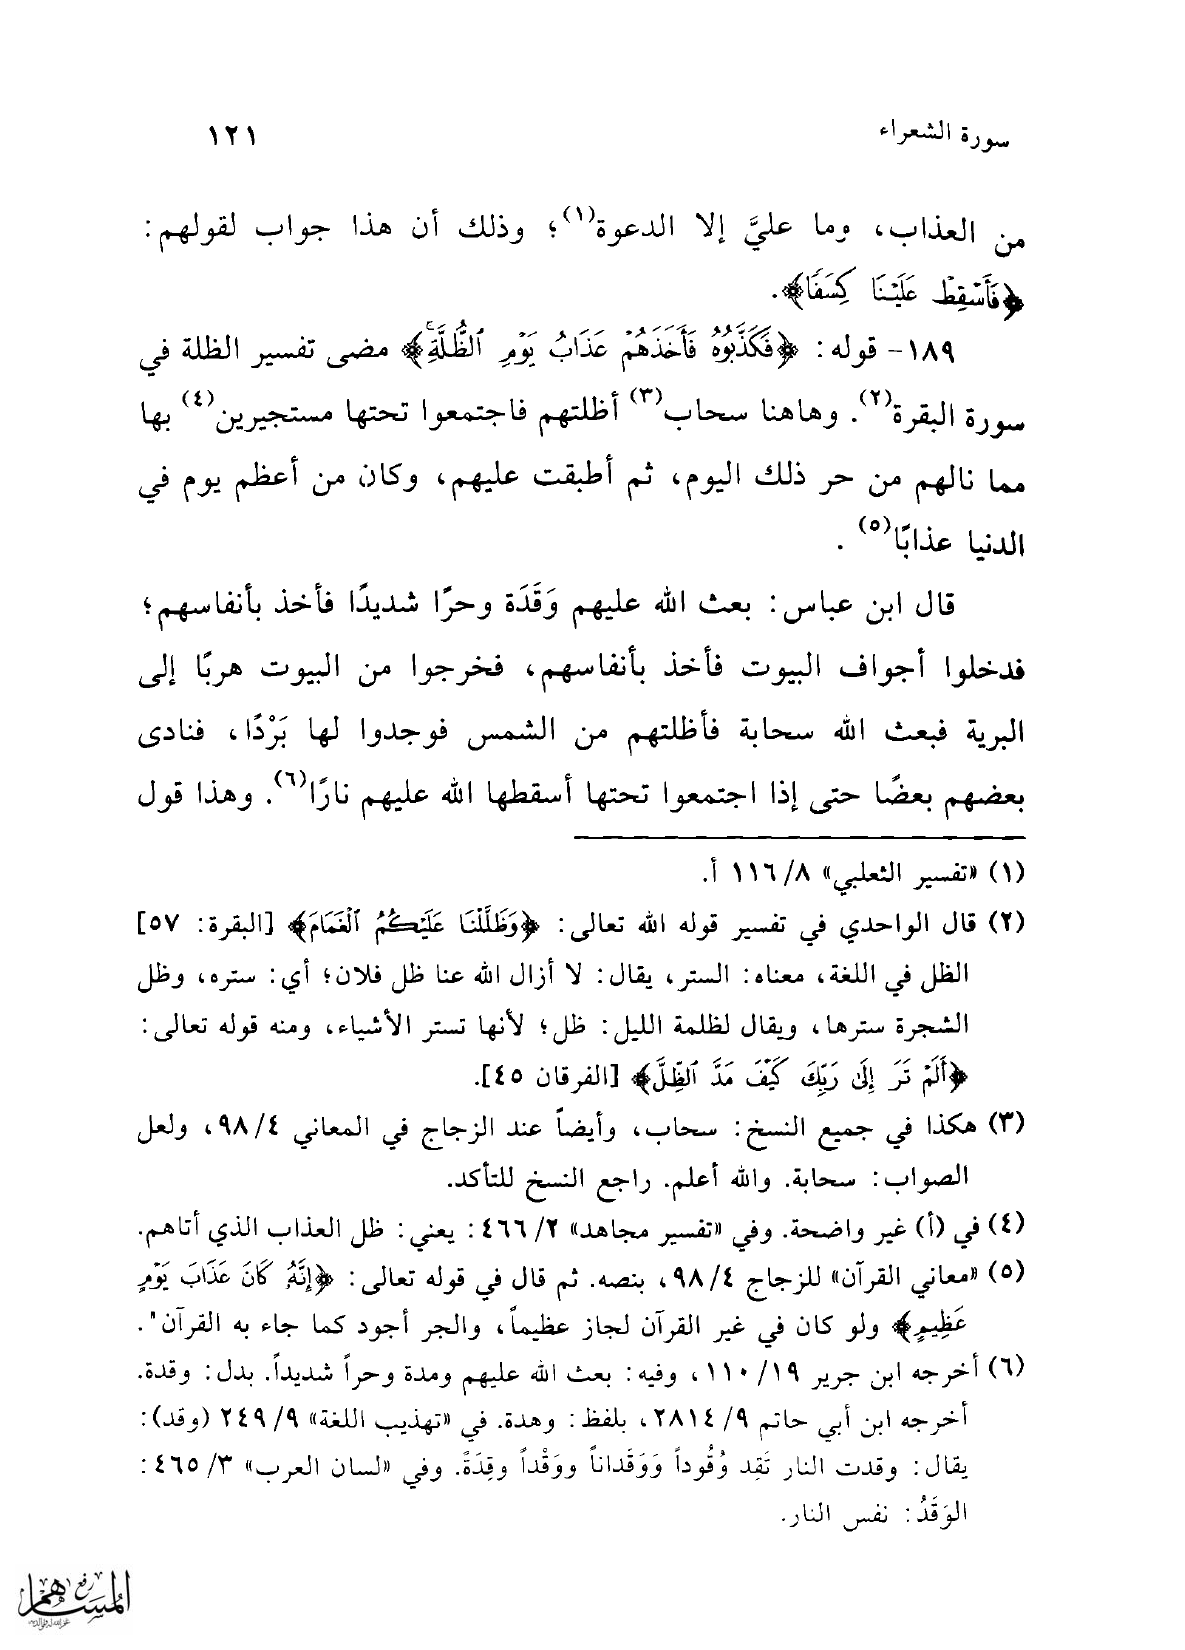 سورة الشعراء
١٢١
من العذاب، وما عليَّ إلا الدعوة(١)؛ وذلك أن هذا جواب لقولهم:
﴿فَأَسْقِطْ عَلَيْنَا كِسَفًا﴾.
١٨٩- قوله: ﴿فَكَذَّبُوهُ فَأَخَذَهُمْ عَذَابُ يَوْمِ ٱلظُّلَّةِۚ﴾ مضى تفسير الظلة في
سورة البقرة(٢). وهاهنا سحاب(٣) أظلتهم فاجتمعوا تحتها مستجيرين(٤) بها
مما نالهم من حر ذلك اليوم، ثم أطبقت عليهم، وكان من أعظم يوم في
الدنيا عذابًا(٥) .
قال ابن عباس: بعث الله عليهم وَقَدَة وحرًا شديدًا فأخذ بأنفاسهم؛
فدخلوا أجواف البيوت فأخذ بأنفاسهم، فخرجوا من البيوت هربًا إلى
البرية فبعث الله سحابة فأظلتهم من الشمس فوجدوا لها بَرْدًا، فنادى
بعضهم بعضًا حتى إذا اجتمعوا تحتها أسقطها الله عليهم نارًا(٦). وهذا قول
(١) «تفسير الثعلبي» ٨/ ١١٦ أ.
(٢) قال الواحدي في تفسير قوله الله تعالى: ﴿وَظَلَّلْنَا عَلَيْكُمُ ٱلْغَمَامَ﴾ [البقرة: ٥٧]
الظل في اللغة، معناه: الستر، يقال: لا أزال الله عنا ظل فلان؛ أي: ستره، وظل
الشجرة سترها، ويقال لظلمة الليل: ظل؛ لأنها تستر الأشياء، ومنه قوله تعالى:
﴿أَلَمْ تَرَ إِلَىٰ رَبِّكَ كَيْفَ مَدَّ ٱلظِّلَّ﴾ [الفرقان ٤٥].
(٣) هكذا في جميع النسخ: سحاب، وأيضاً عند الزجاج في المعاني ٤/ ٩٨، ولعل
الصواب: سحابة. والله أعلم. راجع النسخ للتأكد.
(٤) في (أ) غير واضحة. وفي «تفسير مجاهد» ٢/ ٤٦٦: يعني: ظل العذاب الذي أتاهم.
(٥) «معاني القرآن» للزجاج ٤/ ٩٨، بنصه. ثم قال في قوله تعالى: ﴿إِنَّهُۥ كَانَ عَذَابَ يَوْمٍ
عَظِيمٍ﴾ ولو كان في غير القرآن لجاز عظيماً، والجر أجود كما جاء به القرآن".
(٦) أخرجه ابن جرير ١٩/ ١١٠، وفيه: بعث الله عليهم ومدة وحراً شديداً. بدل: وقدة.
أخرجه ابن أبي حاتم ٩/ ٢٨١٤، بلفظ: وهدة. في «تهذيب اللغة» ٩/ ٢٤٩ (وقد):
يقال: وقدت النار تَقِد وُقُوداً وَوَقَداناً ووَقْداً وقِدَةً. وفي «لسان العرب» ٣/ ٤٦٥:
الوَقَدُ: نفس النار.